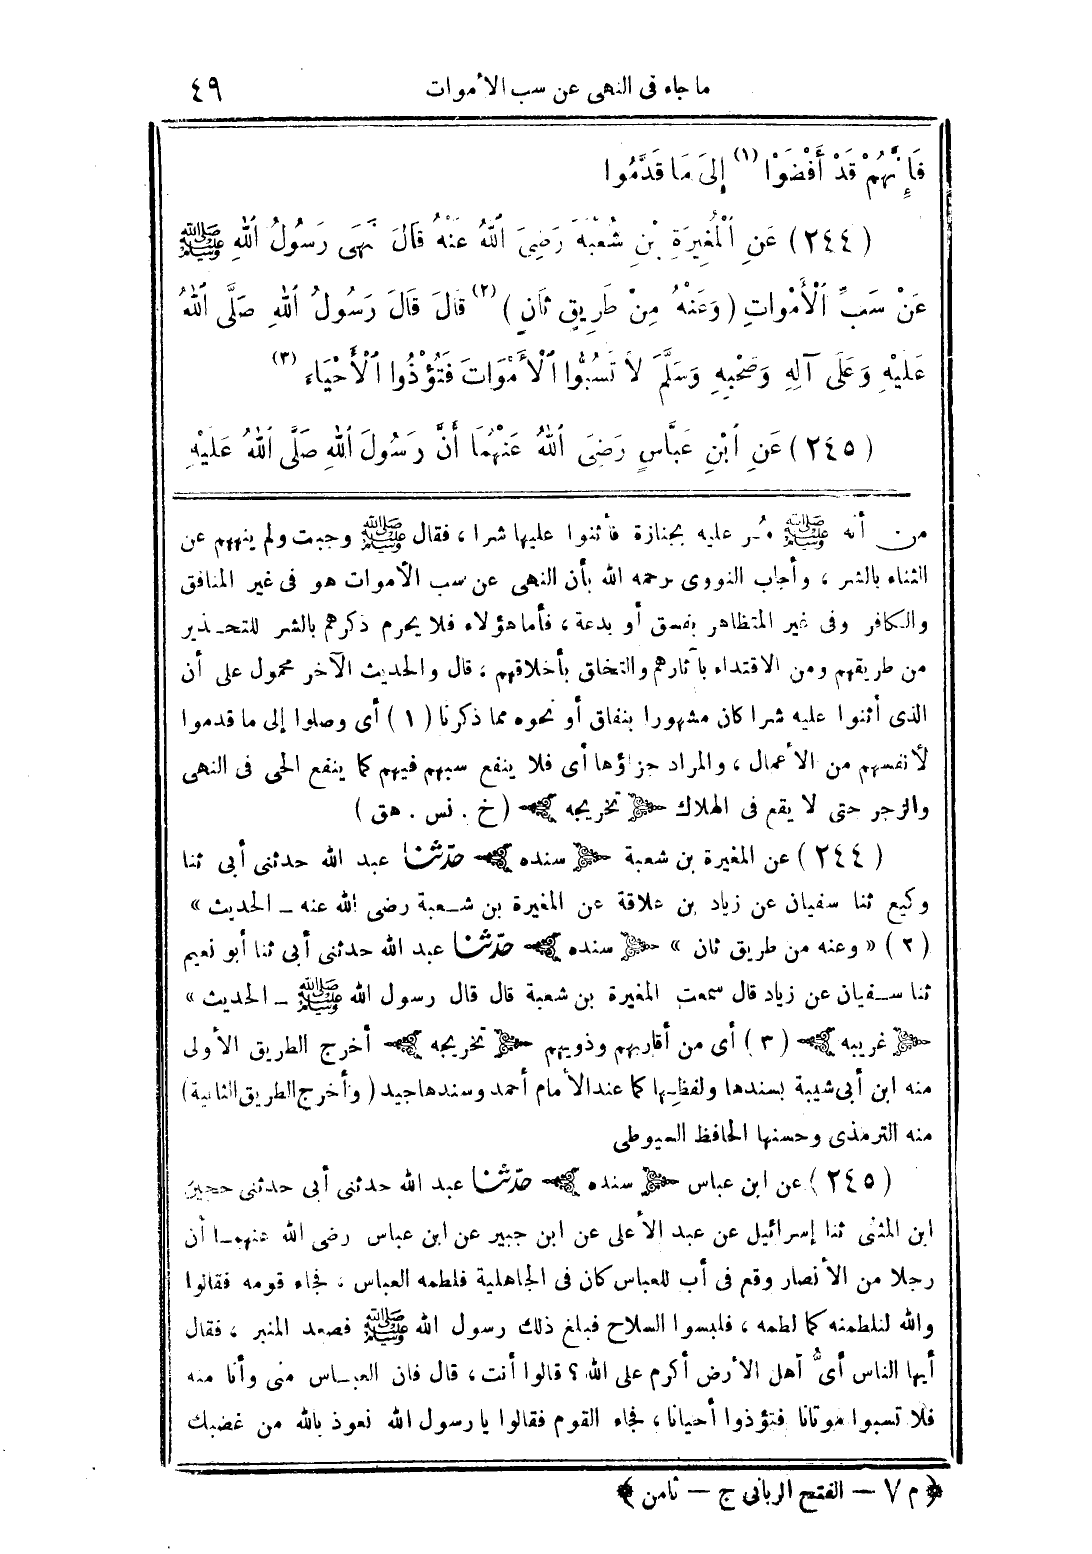 ما جاء فى النهى عن سب الأموات ٤٩
فَإِنَّهُمْ قَدْ أَفْضَوْا (١) إِلَى مَا قَدَّمُوا
(٢٤٤) عَنِ الْمُغِيرَةِ بْنِ شُعْبَةَ رَضِيَ اللهُ عَنْهُ قَالَ نَهَى رَسُولُ اللهِ ﷺ
عَنْ سَبِّ الْأَمْوَاتِ (وَعَنْهُ مِنْ طَرِيقٍ ثَانٍ) (٢) قَالَ قَالَ رَسُولُ اللهِ صَلَّى اللهُ
عَلَيْهِ وَعَلَى آلِهِ وَصَحْبِهِ وَسَلَّمَ لَا تَسُبُّوا الْأَمْوَاتَ فَتُؤْذُوا الْأَحْيَاءَ (٣)
(٢٤٥) عَنِ ابْنِ عَبَّاسٍ رَضِيَ اللهُ عَنْهُمَا أَنَّ رَسُولَ اللهِ صَلَّى اللهُ عَلَيْهِ
من أنه ﷺ مُر عليه بجنازة فأثنوا عليها شرا ، فقال ﷺ وجبت ولم ينههم عن
الثناء بالشر ، وأجاب النووى رحمه الله بأن النهى عن سب الأموات هو فى غير المنافق
والكافر وفى غير المتظاهر بفسق أو بدعة ، فأما هؤلاء فلا يحرم ذكرهم بالشر للتحذير
من طريقهم ومن الاقتداء بآثارهم والتخلق بأخلاقهم ، قال والحديث الآخر محمول على أن
الذى أثنوا عليه شرا كان مشهورا بنفاق أو نحوه مما ذكرنا (١) أى وصلوا إلى ما قدموا
لأنفسهم من الأعمال ، والمراد جزاؤها أى فلا ينفع سبهم فيهم كما ينفع الحى فى النهى
والزجر حتى لا يقع فى الهلاك ﴿ تخريجه ﴾ (خ . نس . هق)
(٢٤٤) عن المغيرة بن شعبة ﴿ سنده ﴾ حدّثنا عبد الله حدثنى أبى ثنا
وكيع ثنا سفيان عن زياد بن علاقة عن المغيرة بن شعبة رضى الله عنه ــ الحديث »
(٢) « وعنه من طريق ثان » ﴿ سنده ﴾ حدّثنا عبد الله حدثنى أبى ثنا أبو نعيم
ثنا سفيان عن زياد قال سمعت المغيرة بن شعبة قال قال رسول الله ﷺ ــ الحديث »
﴿ غريبه ﴾ (٣) أى من أقاربهم وذويهم ﴿ تخريجه ﴾ أخرج الطريق الأولى
منه ابن أبى شيبة بسندها ولفظها كما عند الأمام أحمد وسندها جيد (وأخرج الطريق الثانية)
منه الترمذى وحسنها الحافظ السيوطى
(٢٤٥) عن ابن عباس ﴿ سنده ﴾ حدّثنا عبد الله حدثنى أبى حدثنى حجين
ابن المثنى ثنا إسرائيل عن عبد الأعلى عن ابن جبير عن ابن عباس رضى الله عنهما أن
رجلا من الأنصار وقع فى أب للعباس كان فى الجاهلية فلطمه العباس ، فجاء قومه فقالوا
والله لنلطمنه كما لطمه ، فلبسوا السلاح فبلغ ذلك رسول الله ﷺ فصعد المنبر ، فقال
أيها الناس أىُّ أهل الأرض أكرم على الله ؟ قالوا أنت ، قال فان العباس منى وأنا منه
فلا تسبوا موتانا فتؤذوا أحيانا ، فجاء القوم فقالوا يا رسول الله نعوذ بالله من غضبك
﴿ م ٧ – الفتح الربانى ج – ثامن ﴾